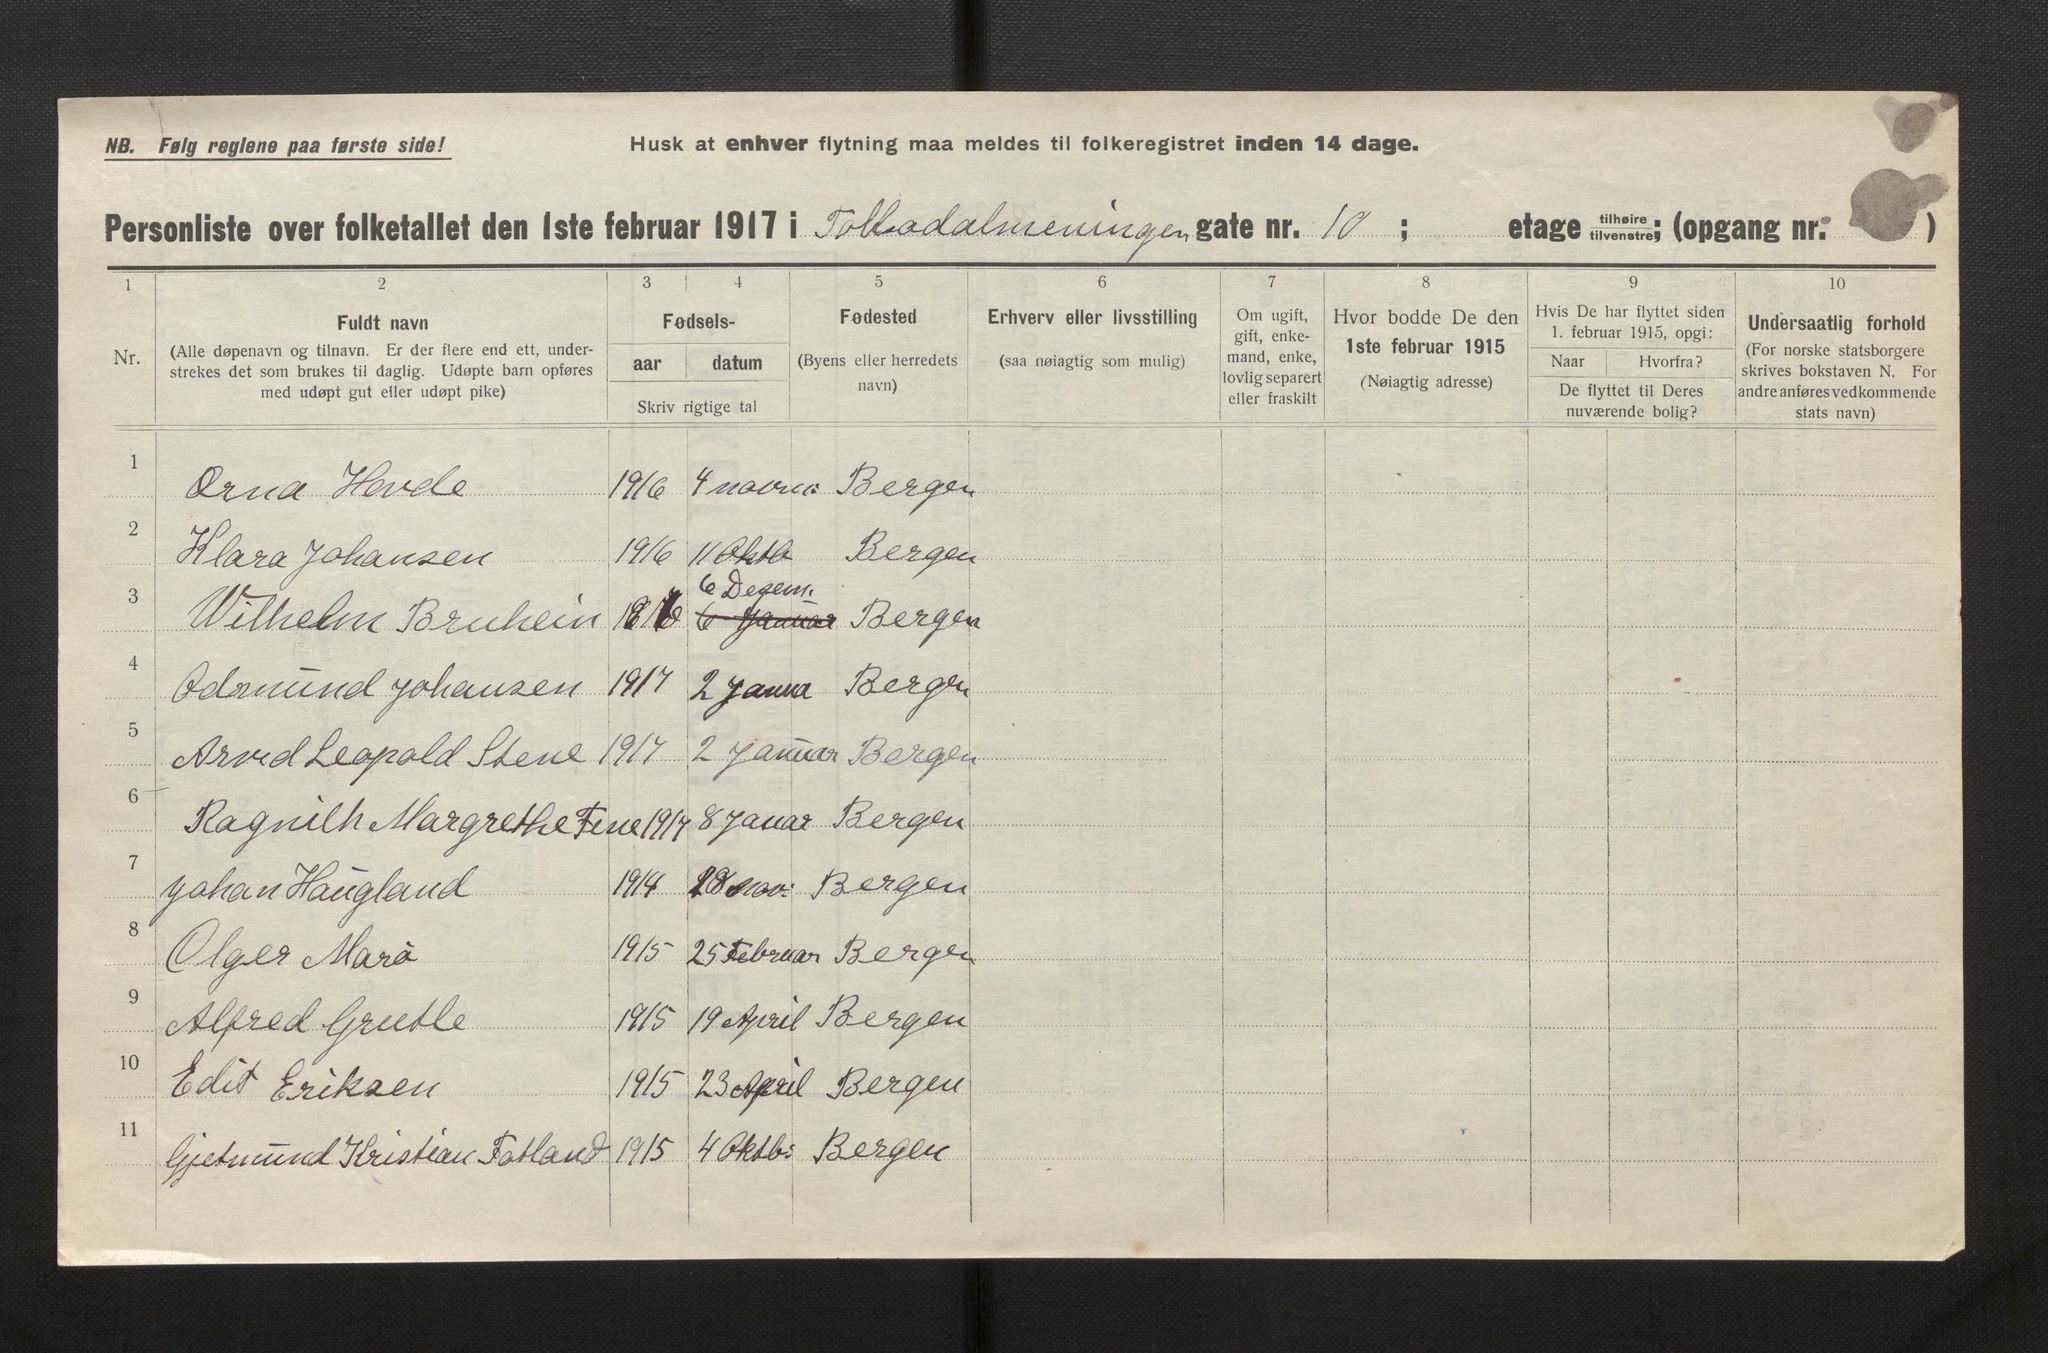 NB. Følg reglene paa første side!
Husk at enhver flytning maa meldes til folkeregistret inden 14 dage.
Personliste over folketallet den 1ste februar 1917 i Tolbodalmeningen gate nr. 10 ; etage tilhøire tilvenstre; (opgang nr. )
1 2 3 4 5 6 7 8 9 10
Nr.
Fuldt navn
(Alle døpenavn og tilnavn. Er der flere end ett, under-
strekes det som brukes til daglig. Udøpte barn opføres
med udøpt gut eller udøpt pike)
Fødsels-
aar datum
Skriv rigtige tal
Fødested
(Byens eller herredets
navn)
Erhverv eller livsstilling
(saa nøiagtig som mulig)
Om ugift,
gift, enke-
mand, enke,
lovlig separert
eller fraskilt
Hvor bodde De den
1ste februar 1915
(Nøiagtig adresse)
Hvis De har flyttet siden
1. februar 1915, opgi:
Naar Hvorfra?
De flyttet til Deres
nuværende bolig?
Undersaatlig forhold
(For norske statsborgere
skrives bokstaven N. For
andre anføres vedkommende
stats navn)
1 Orna Hovde 1916 4 novm: Bergen
2 Klara Johansen 1916 11 Oktb Bergen
6 Dezem.
3 Wilhelm Bruhein 1916 6 Januar Bergen
4 Odsmund Johansen 1917 2 Janua Bergen
5 Arvid Leopold Stene 1917 2 Januar Bergen
6 Ragnilh Margrethe Fine 1917 8 Januar Bergen
7 Johan Haugland 1914 28 nov: Bergen
8 Olger Marø 1915 25 Februar Bergen
9 Alfred Grutle 1915 19 April Bergen
10 Edit Eriksen 1915 23 April Bergen
11 Gjetmund Kristian Fatland 1915 4 Oktb: Bergen